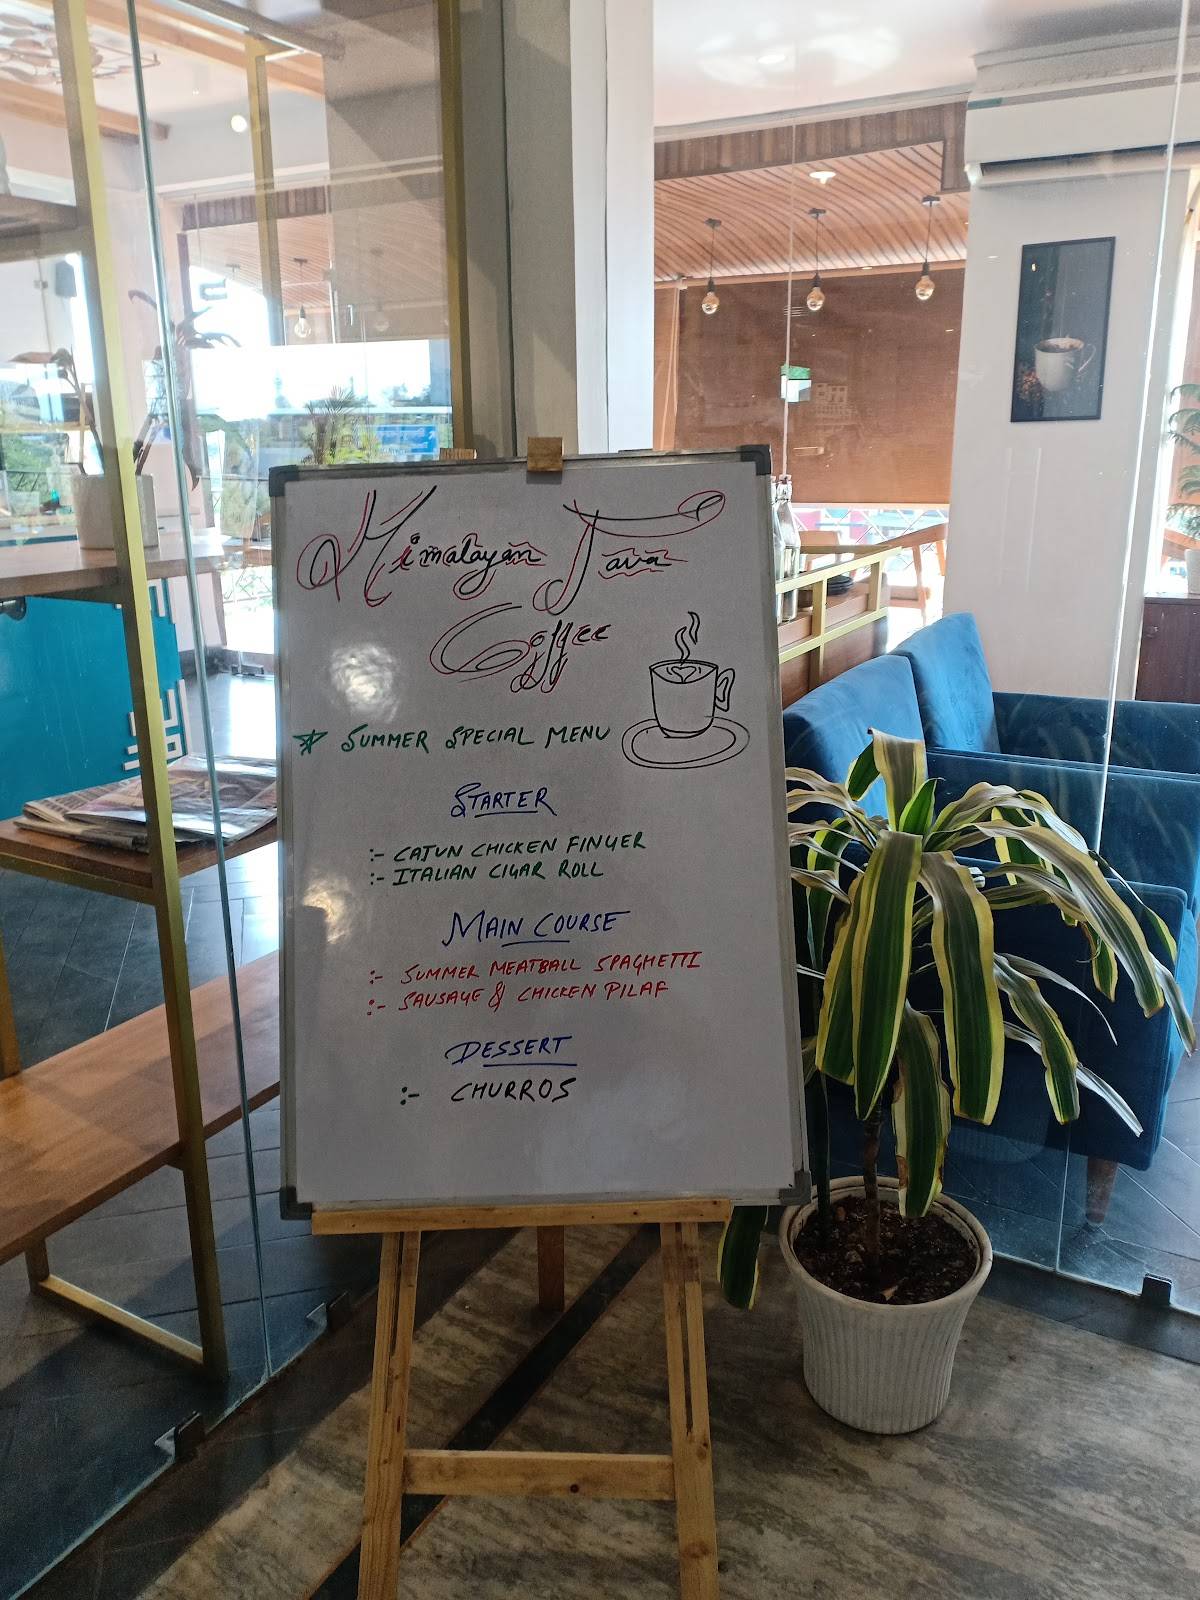 Himalayan Java
Coffee
SUMMER SPECIAL MENU
STARTER
:- CAJUN CHICKEN FINGER
:- ITALIAN CIGAR ROLL
MAIN COURSE
:- SUMMER MEATBALL SPAGHETTI
:- SAUSAGE & CHICKEN PILAF
DESSERT
:- CHURROS